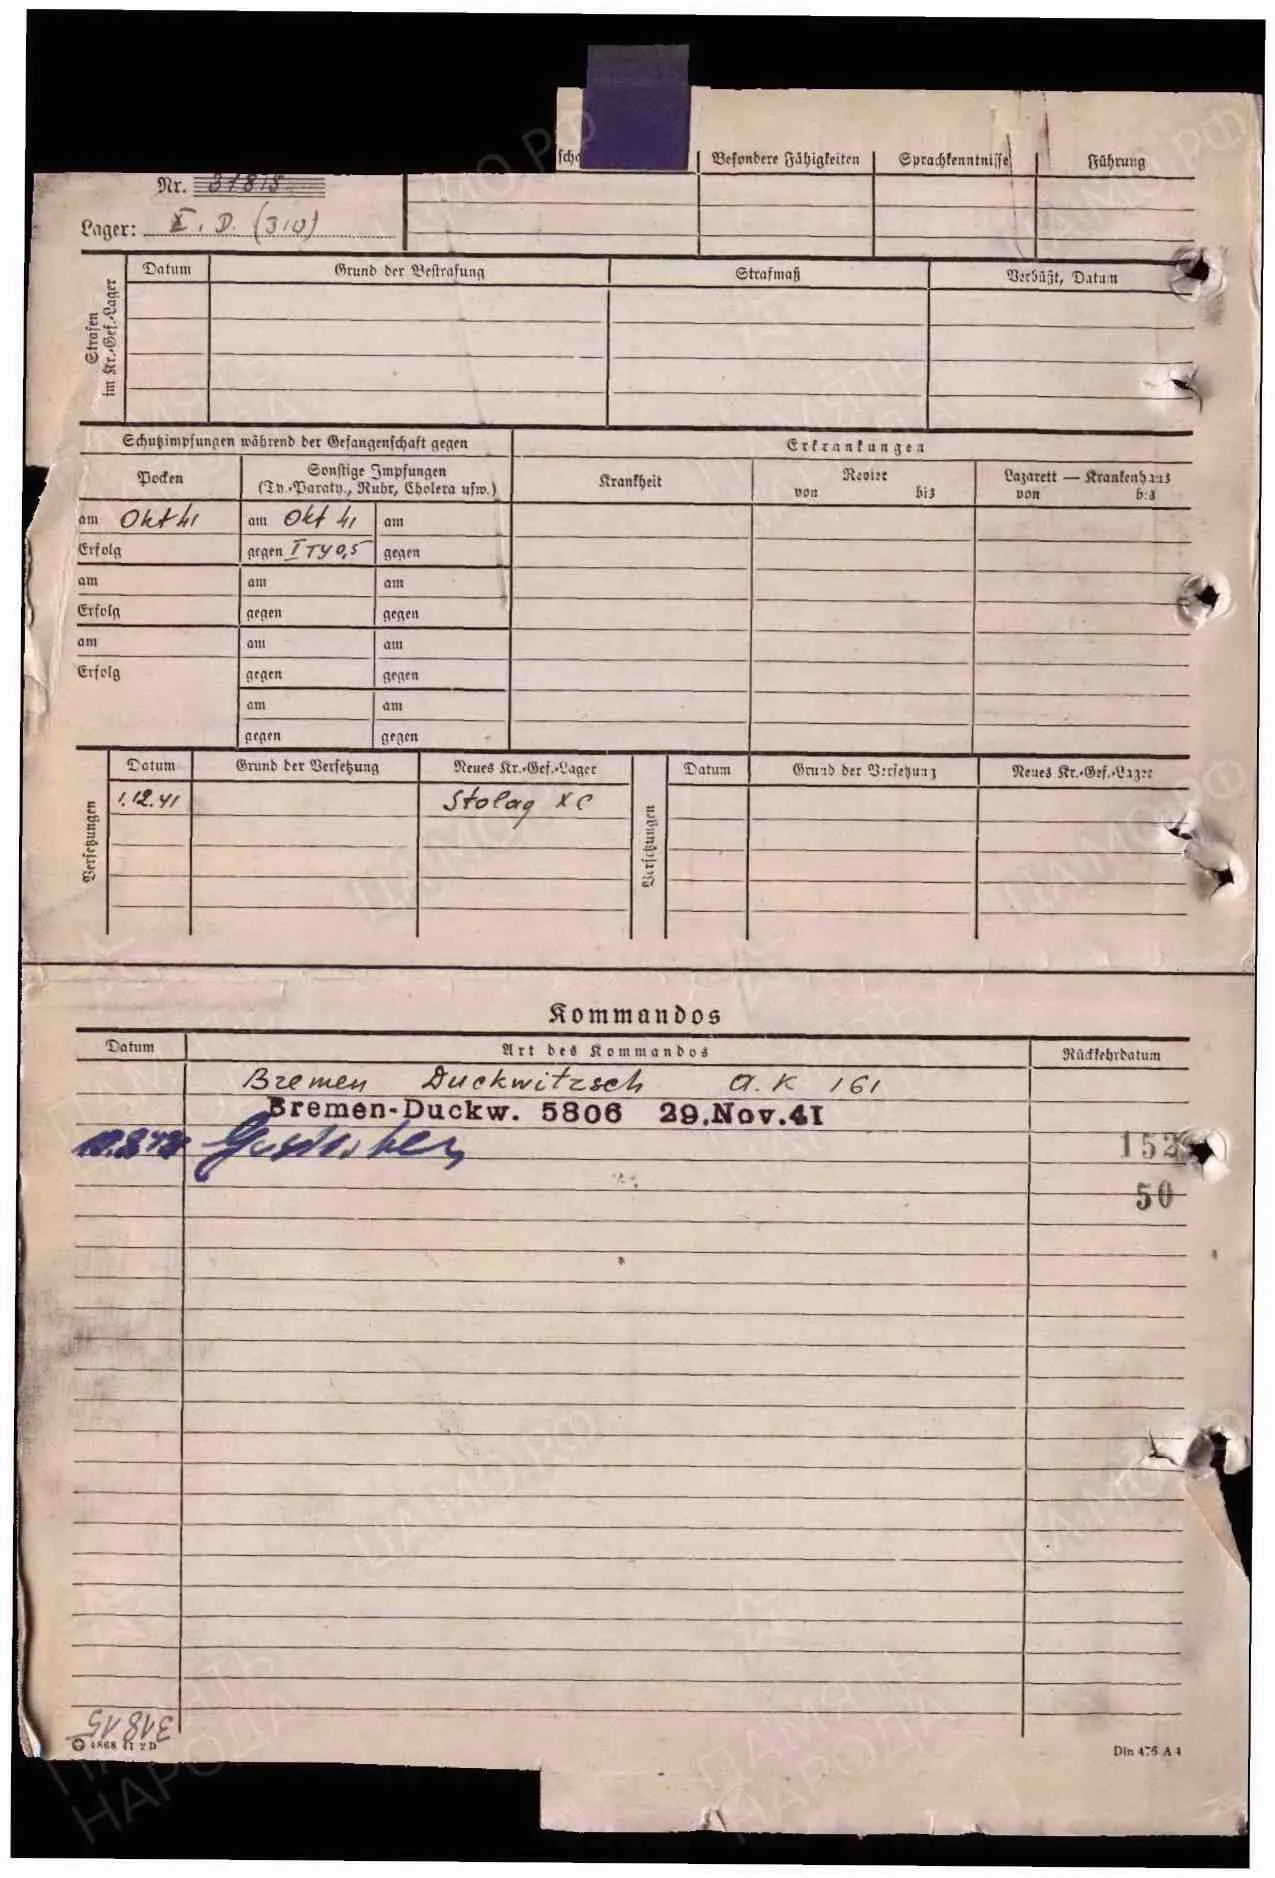 Besondere Fähigkeiten Sprachkenntnisse Führung
Nr. 31815
Lager: X. D. (310)
Strafen im Kr.-Gef.-Lager
Datum Grund der Bestrafung Strafmaß Verbüßt, Datum
Schutzimpfungen während der Gefangenschaft gegen Erkrankungen
Pocken Sonstige Impfungen (Ty.-Paraty., Ruhr, Cholera usw.) Krankheit Revier von bis Lazarett — Krankenhaus von bis
am Okt 41 am Okt 41 am
Erfolg gegen I TY 0,5 gegen
am am am
Erfolg gegen gegen
am am am
Erfolg gegen gegen
am am
gegen gegen
Versetzungen Datum Grund der Versetzung Neues Kr.-Gef.-Lager Versetzungen Datum Grund der Versetzung Neues Kr.-Gef.-Lager
1.12.41 Stalag X C
Kommandos
Datum Art des Kommandos Rückkehrdatum
Bremen Duckwitzsch A.K 161
Bremen-Duckw. 5806 29.Nov.41
152
50
31815
Din 476 A 4